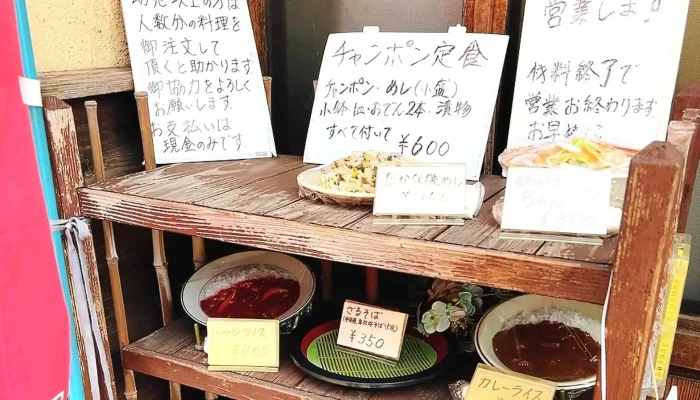 人数分の料理を
御注文して
頂くと助かります
御協力をよろしく
お願いします。
お支払いは
現金のみです
チャンポン定食
チャンポン・めし(小盛)
小鉢・おでん2本・漬物
すべて付いて ¥600
営業します!
材料終了で
営業お終わります。
お早めに
たかな焼めし
ハヤシライス
¥400
ざるそば
¥350
カレーライス